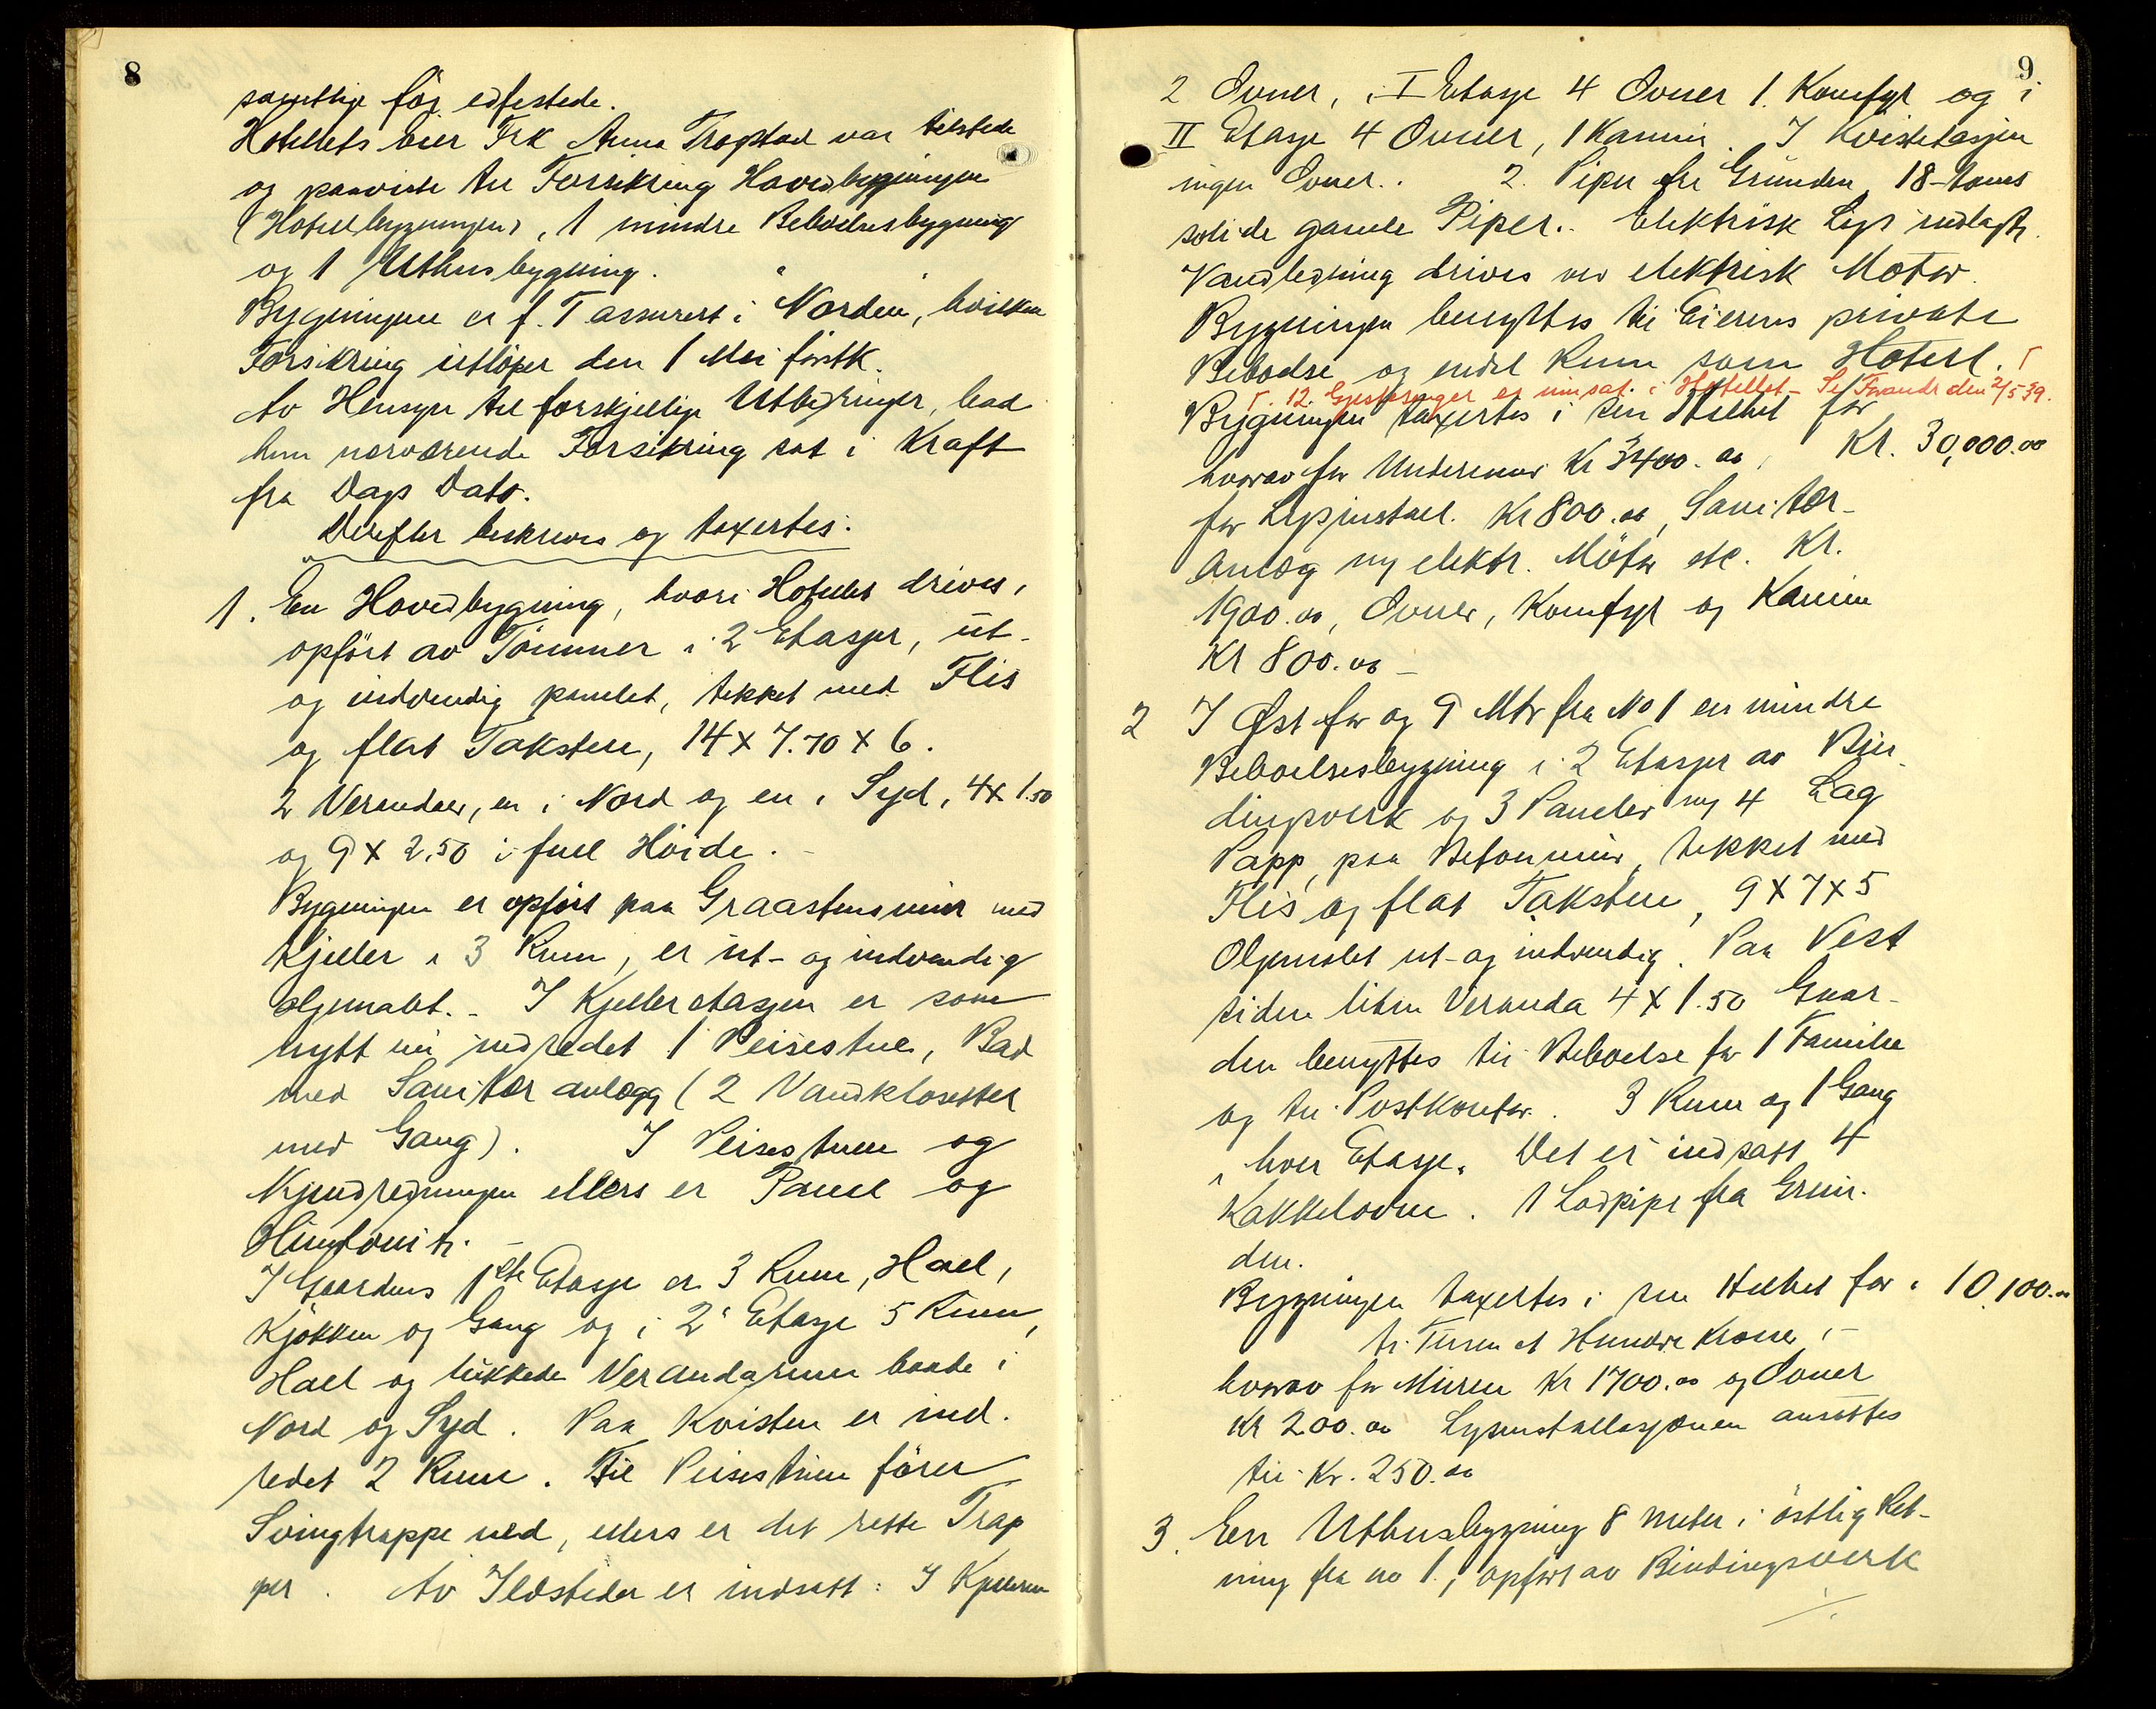 8
samtlige før edfestede.
Hotellets eier Frk Anna Trogstad var tilstede
og paaviste til Forsikring Hovedbygningen
(Hotelbygningen), 1 mindre Beboelsesbygning
og 1 Uthusbygning.
Bygningene er f. T assurert i Norden, hvilken
Forsikring utløper den 1 Mai førstk.
Av Hensyn til forskjellige Utbedringer, bad
hun nærværende Forsikring sat i Kraft
fra Dags Dato.
Derefter beskreves og taxertes:
1. En Hovedbygning, hvori Hotellet drives,
opført av Tømmer i 2 Etasjer, ut-
og indvendig panelet, tekket med Flis
og flat Taksten, 14 x 7.70 x 6.
2 Verandaer, en i Nord og en i Syd, 4 x 1.50
og 9 x 2.50 i full Høide.
Bygningen er opført paa Graastensmur med
Kjeller i 3 Rum, er ut- og indvendig
oljemalt. - I Kjelleretasjen er som
nytt nu indredet 1 Peisestue, Bad
med Sanitæranlegg (2 Vandklosetter
med Gang). I Peisestuen og
Nyindredningen ellers er Panel og
Huntonit.
I Gaardens 1ste Etasje er 3 Rum, Hall,
Kjøkken og Gang og i 2' Etasje 5 Rum,
Hall og lukkede Verandarum baade i
Nord og Syd. Paa Kvisten er ind-
redet 2 Rum. Til Peisestuen fører
Svingtrappe ned, ellers er det rette Trap
per. Av Ildsteder er indsatt: I Kjelleren
9
2 Ovner, i I Etasje 4 Ovner 1 Komfyr og i
II Etage 4 Ovner, 1 Kamin. I Kvistetasjen
ingen Ovner. 2 Piper fra Grunden, 18-toms
solide gamle Piper. Elektrisk Lys indlagt.
Vandledning drives ved elektrisk Motor.
Bygningen benyttes til Eierens private
Beboelse og endel Rum som Hotell. Γ
Γ. 12 Gjestesenger er innsat i Hotellet - Se Forandr den 2/5 39.
Bygningen taxertes i sin Helhet for
hvorav for Undermur Kr 3400.00, Kr. 30,000.00
for Lysinstall. Kr 800.00, Sanitær-
anlæg ny elektr. Motor etc. Kr.
1900.00, Ovner, Komfyr og Kamin
Kr 800.00 -
2 I Øst for og 9 Mtr fra No 1 en mindre
Beboelsesbygning i 2 Etasjer av Bin-
dingsverk og 3 Paneler og 4 Lag
Papp, paa Betonmur, tekket med
Flis og flat Taksten, 9 x 7 x 5
Oljemalet ut- og indvendig. Paa Vest
siden liten Veranda 4 x 1.50 Gaar-
den benyttes til Beboelse for 1 Familie
og til Postkontor. 3 Rum og 1 Gang
i hver Etasje. Det er indsatt 4
Kakkelovne. 1 Lodpipe fra Grun-
den.
Bygningen taxertes i sin Helhet for, 10.100.00
ti Tusen et Hundre Kroner, -
hvorav for Muren Kr 1700.00 og Ovner
Kr 200.00 Lysinstallasjonen ansættes
til Kr. 250.00
3. En Uthusbygning 8 meter i østlig Ret-
ning fra no 1, opført av Bindingsverk